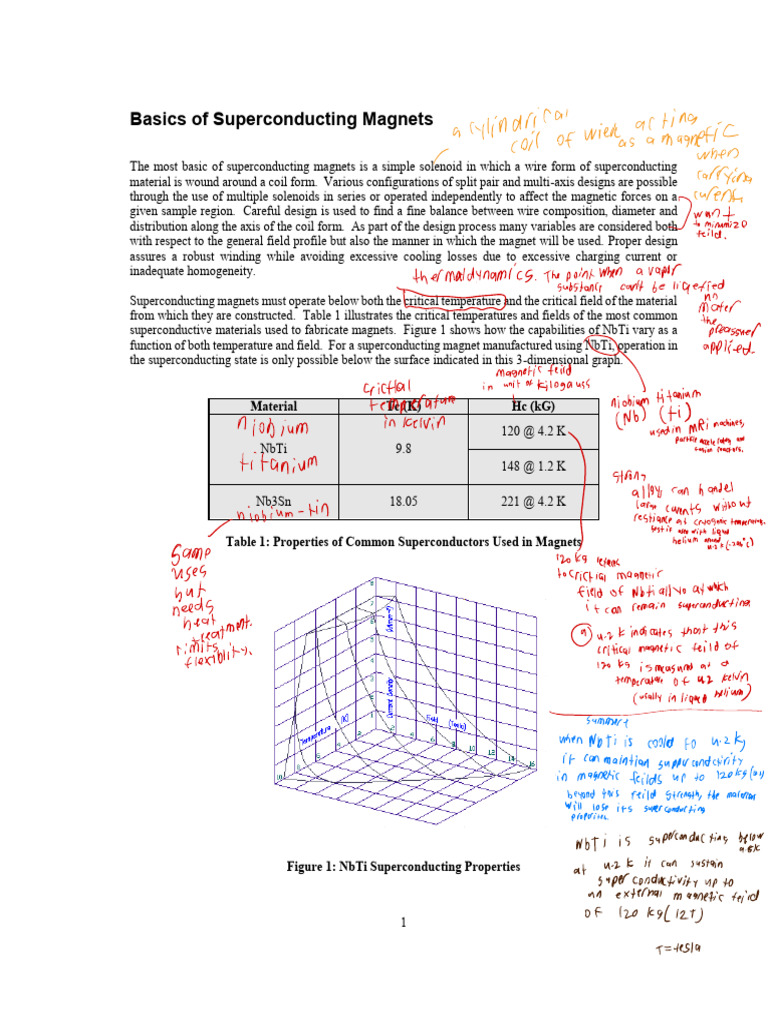 Basics of Superconducting Magnets
a cylindrical
coil of wier acting
as a magnetic
when
carrying
curent
The most basic of superconducting magnets is a simple solenoid in which a wire form of superconducting
material is wound around a coil form. Various configurations of split pair and multi-axis designs are possible
through the use of multiple solenoids in series or operated independently to affect the magnetic forces on a
given sample region. Careful design is used to find a fine balance between wire composition, diameter and
distribution along the axis of the coil form. As part of the design process many variables are considered both
with respect to the general field profile but also the manner in which the magnet will be used. Proper design
assures a robust winding while avoiding excessive cooling losses due to excessive charging current or
inadequate homogeneity.
want
to minimize
feild.
thermaldynamics. The point when a vapor
substance can't be liqefied
no
mater
the
preassner
applied.
Superconducting magnets must operate below both the critical temperature and the critical field of the material
from which they are constructed. Table 1 illustrates the critical temperatures and fields of the most common
superconductive materials used to fabricate magnets. Figure 1 shows how the capabilities of NbTi vary as a
function of both temperature and field. For a superconducting magnet manufactured using NbTi, operation in
the superconducting state is only possible below the surface indicated in this 3-dimensional graph.
magnetic feild
in unit of kilogauss
crictial
temperature
in kelvin
Material Tc (K) Hc (kG)
niobium
NbTi 9.8 120 @ 4.2 K
titanium
148 @ 1.2 K
Nb3Sn 18.05 221 @ 4.2 K
niobium-tin
Table 1: Properties of Common Superconductors Used in Magnets
niobium titanium
(Nb) (ti)
used in MRi machines,
particle accelerators and
fusion reactors.
string
alloy, can handel
large curents without
restiance at cryogenic temperature.
helium around
4.2 k
Same
uses
but
needs
heat
treatment.
limits
flexiblity.
120 kg
to crictial magnetic
field of Nbti alloy at which
it can remain superconducting
@ 4.2 k indicates that this
critical magnetic feild of
120 kg is measured at a
temperature of 4.2 kelvin
(usally in liqued helium)
Temperature (K)
Current Density
Field (Tesla)
10 8 6 4 2
2 4 6 8 10 12 14 16
Figure 1: NbTi Superconducting Properties
summary
when NbTi is coold to 4.2 kg
it can maintian supper conductivity
in magnetic feilds up to 120 kg
beyond this feild strength, the material
will lose its superconducting
properties.
NbTi is superconducting below
at 4.2 k it can sustain
super conductivity up to
an external magnetic feild
of 120 kg (12T)
T=tesla
1